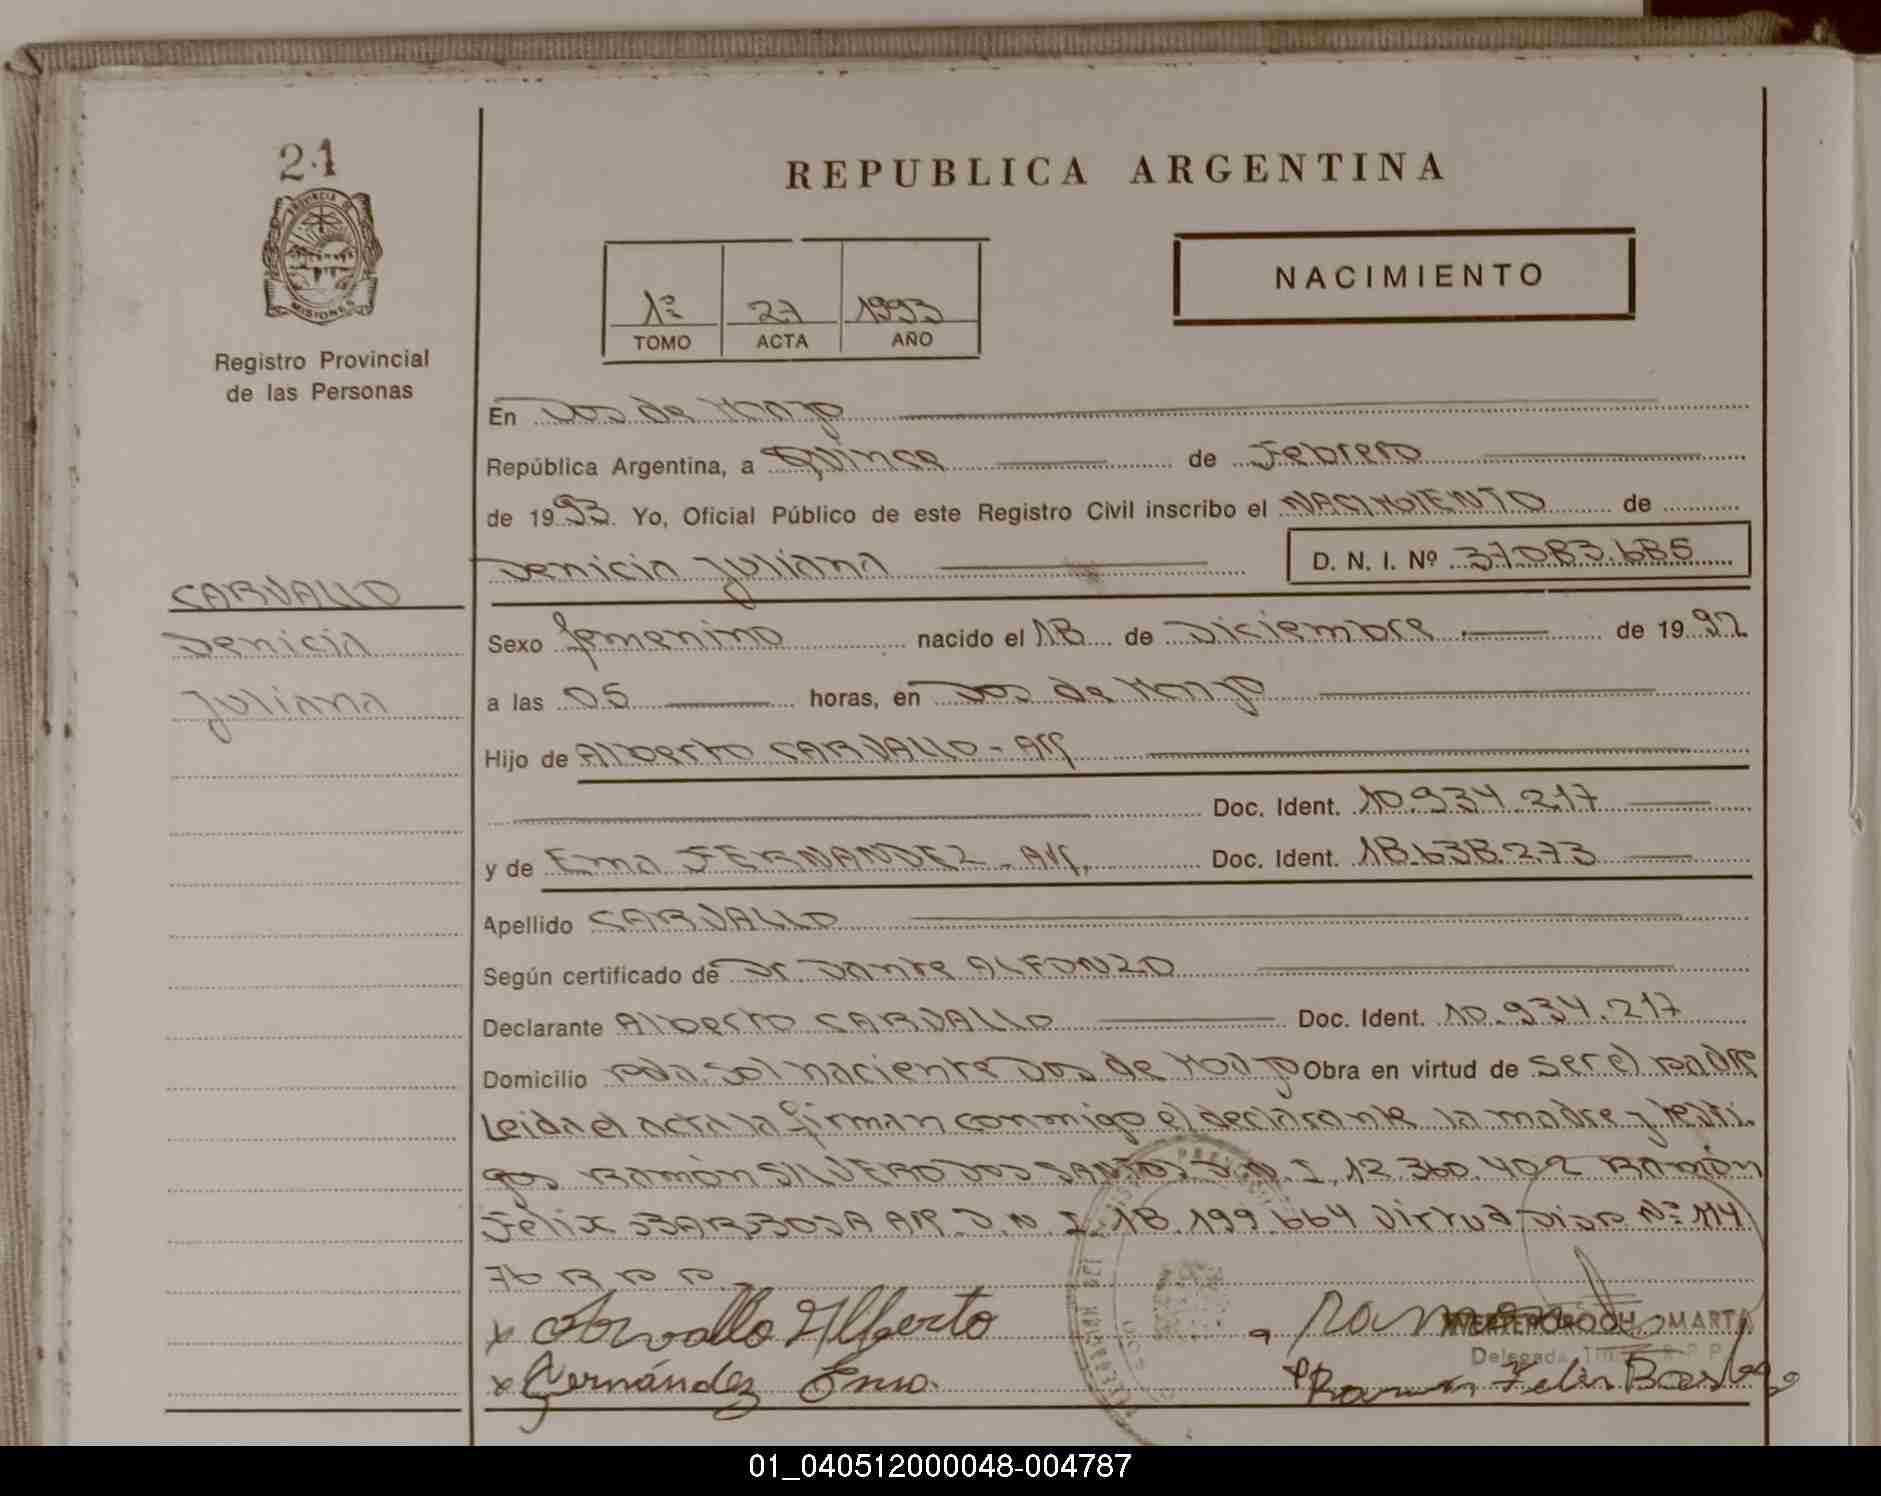 21
PROVINCIA DE
MISIONES
Registro Provincial
de las Personas
REPUBLICA ARGENTINA
1º 27 1993
TOMO ACTA AÑO
NACIMIENTO
En Dos de Mayo
República Argentina, a Quince de Febrero
de 1993. Yo, Oficial Público de este Registro Civil inscribo el NACIMIENTO de
Denicia Juliana D. N. I. Nº 37.083.685
CARVALLO
Denicia
Juliana
Sexo femenino nacido el 18 de Diciembre de 1992
a las 05 horas, en Dos de Mayo
Hijo de Alberto CARVALLO - Arg.
Doc. Ident. 10.934.217
y de Ema FERNANDEZ - Arg. Doc. Ident. 18.638.273
Apellido CARVALLO
Según certificado de Dr Dante ALFONZO
Declarante Alberto CARVALLO Doc. Ident. 10.934.217
Domicilio Pda. Sol naciente Dos de Mayo Obra en virtud de ser el padre
Leida el acta la firman conmigo el declarante la madre y testi-
gos Ramón SILVERO DOS SANTOS D.N.I. 12.360.402 Ramón
Felix BARBOSA Arg. D.N.I. 18.199.664 Virtud Disp. Nº 114/
76 R.P.P.
x Carvallo Alberto
a Ramon
MARTA
Delegada
x Fernández Ema.
Ramon Felix Barboza
01_040512000048-004787